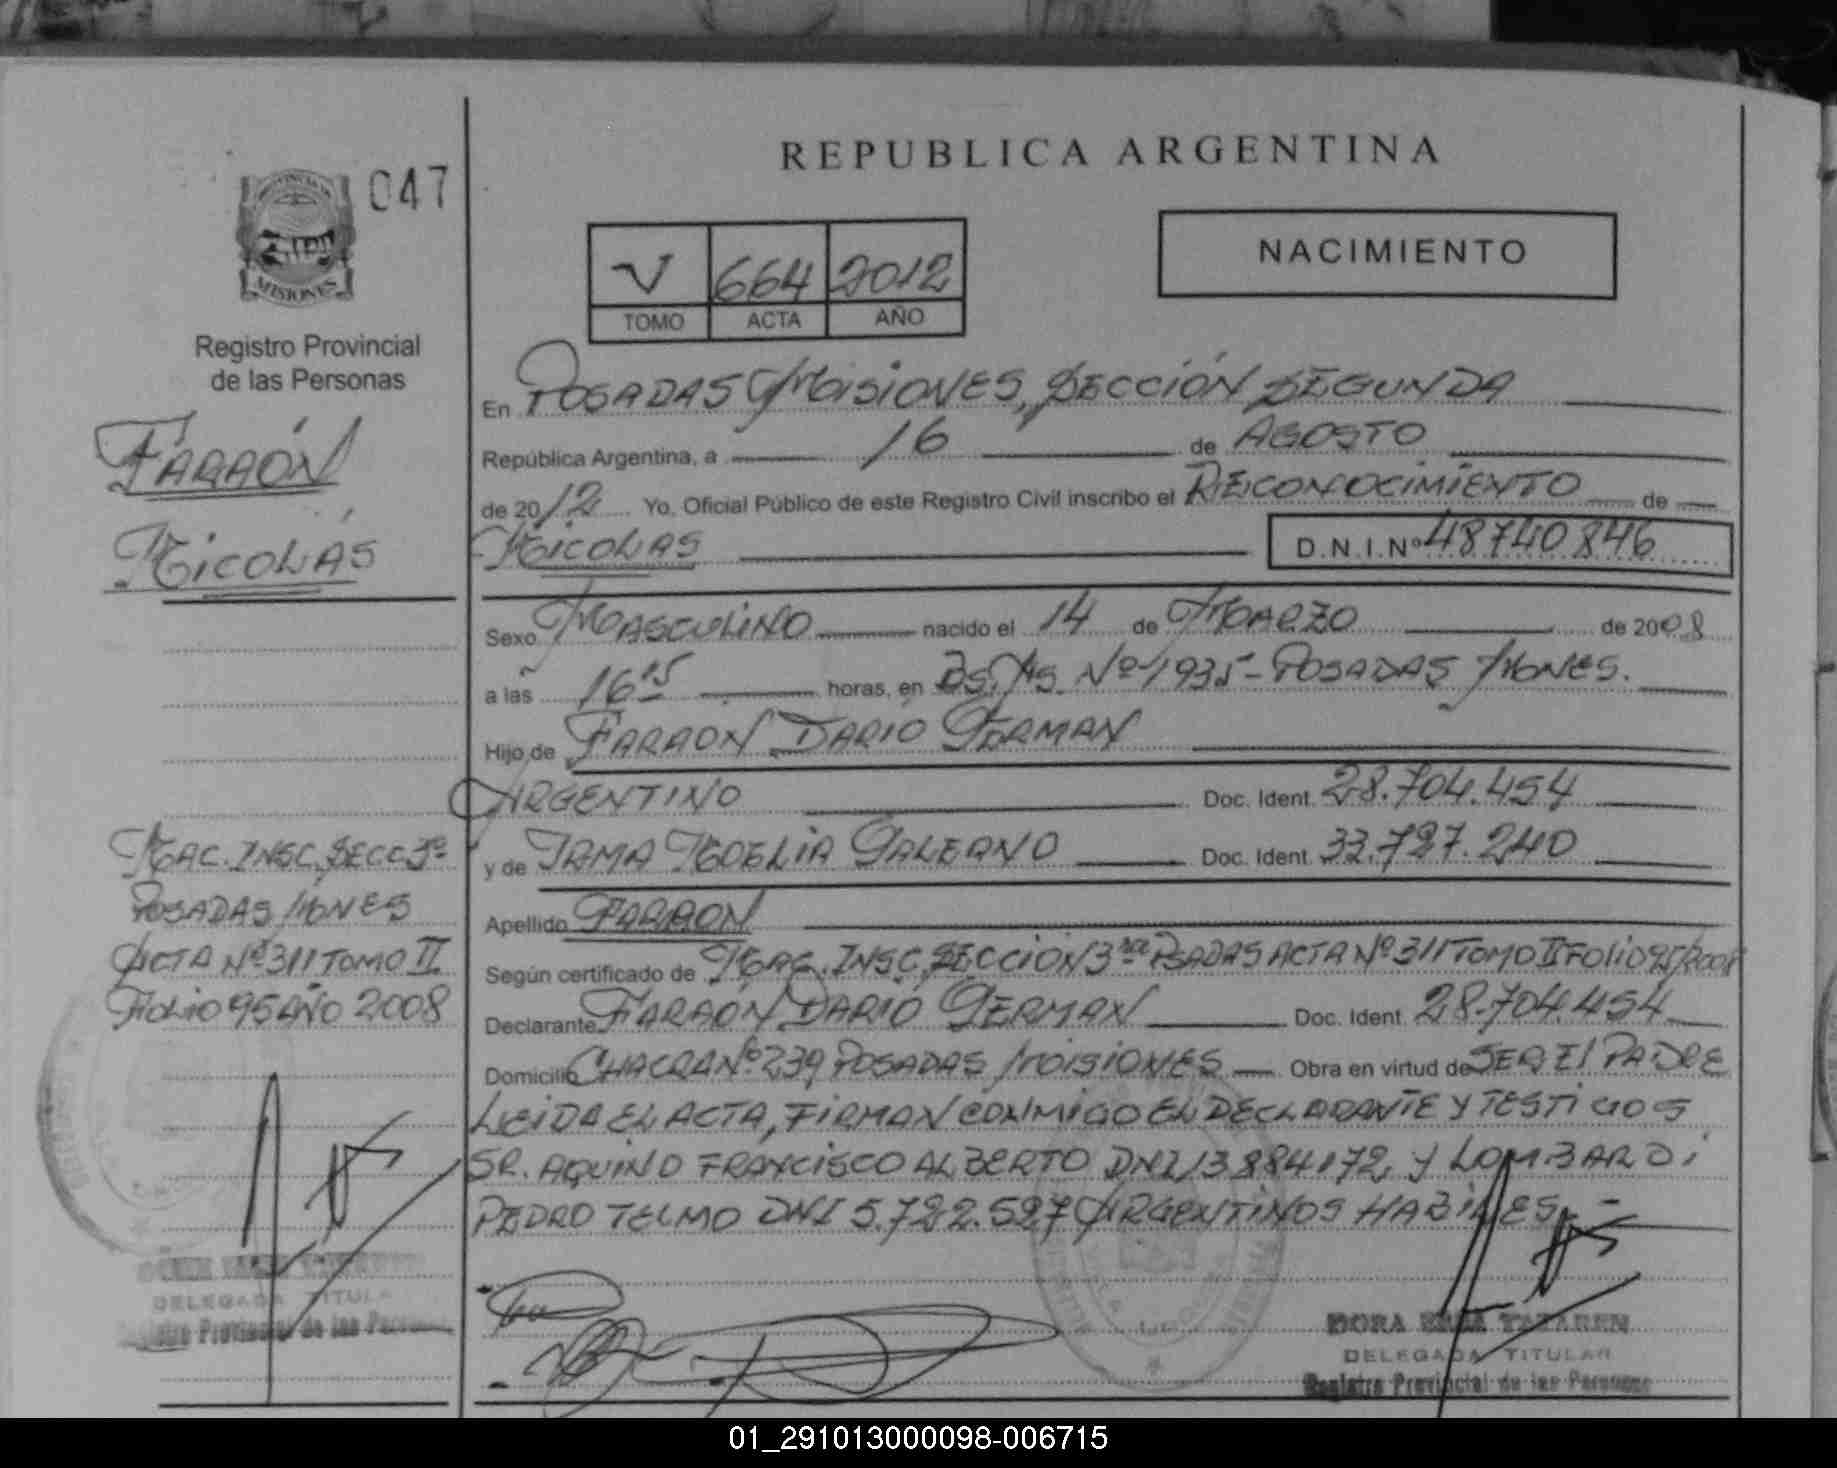 REPUBLICA ARGENTINA
047
NACIMIENTO
V 664 2012
TOMO ACTA AÑO
MISIONES
Registro Provincial
de las Personas
FARAÓN
NICOLÁS
En POSADAS MISIONES, SECCIÓN SEGUNDA
República Argentina, a 16 de AGOSTO
de 2012 Yo, Oficial Público de este Registro Civil inscribo el RECONOCIMIENTO de
NICOLAS D.N.I.Nº 48740846
Sexo MASCULINO nacido el 14 de MARZO de 2008
a las 16 15 horas, en BS. AS. Nº 1935 - POSADAS MNES.
Hijo de FARAON DARIO GERMAN
ARGENTINO Doc. Ident. 28.704.454
y de IRMA NOELIA GALEANO Doc. Ident. 33.727.240
Apellido FARAON
Según certificado de NAC. INSC. SECCIÓN 3ra POSADAS ACTA Nº 311 TOMO II FOLIO 95/2008
Declarante FARAON DARIO GERMAN Doc. Ident. 28.704.454
Domicilio CHACRA Nº 239 POSADAS MISIONES Obra en virtud de SER EL PADRE
LEIDA EL ACTA, FIRMAN CONMIGO EL DECLARANTE Y TESTIGOS
SR. AQUINO FRANCISCO ALBERTO DNI 13884172, Y LOMBARDI
PEDRO TELMO DNI 5.722.527 ARGENTINOS HABILES. -
NAC. INSC. SECC 3ª
POSADAS MNES
ACTA Nº 311 TOMO II
FOLIO 95 AÑO 2008
DELEGADA TITULAR
Registro Provincial de las Personas
DORA
DELEGADA TITULAR
Registro Provincial de las Personas
01_291013000098-006715